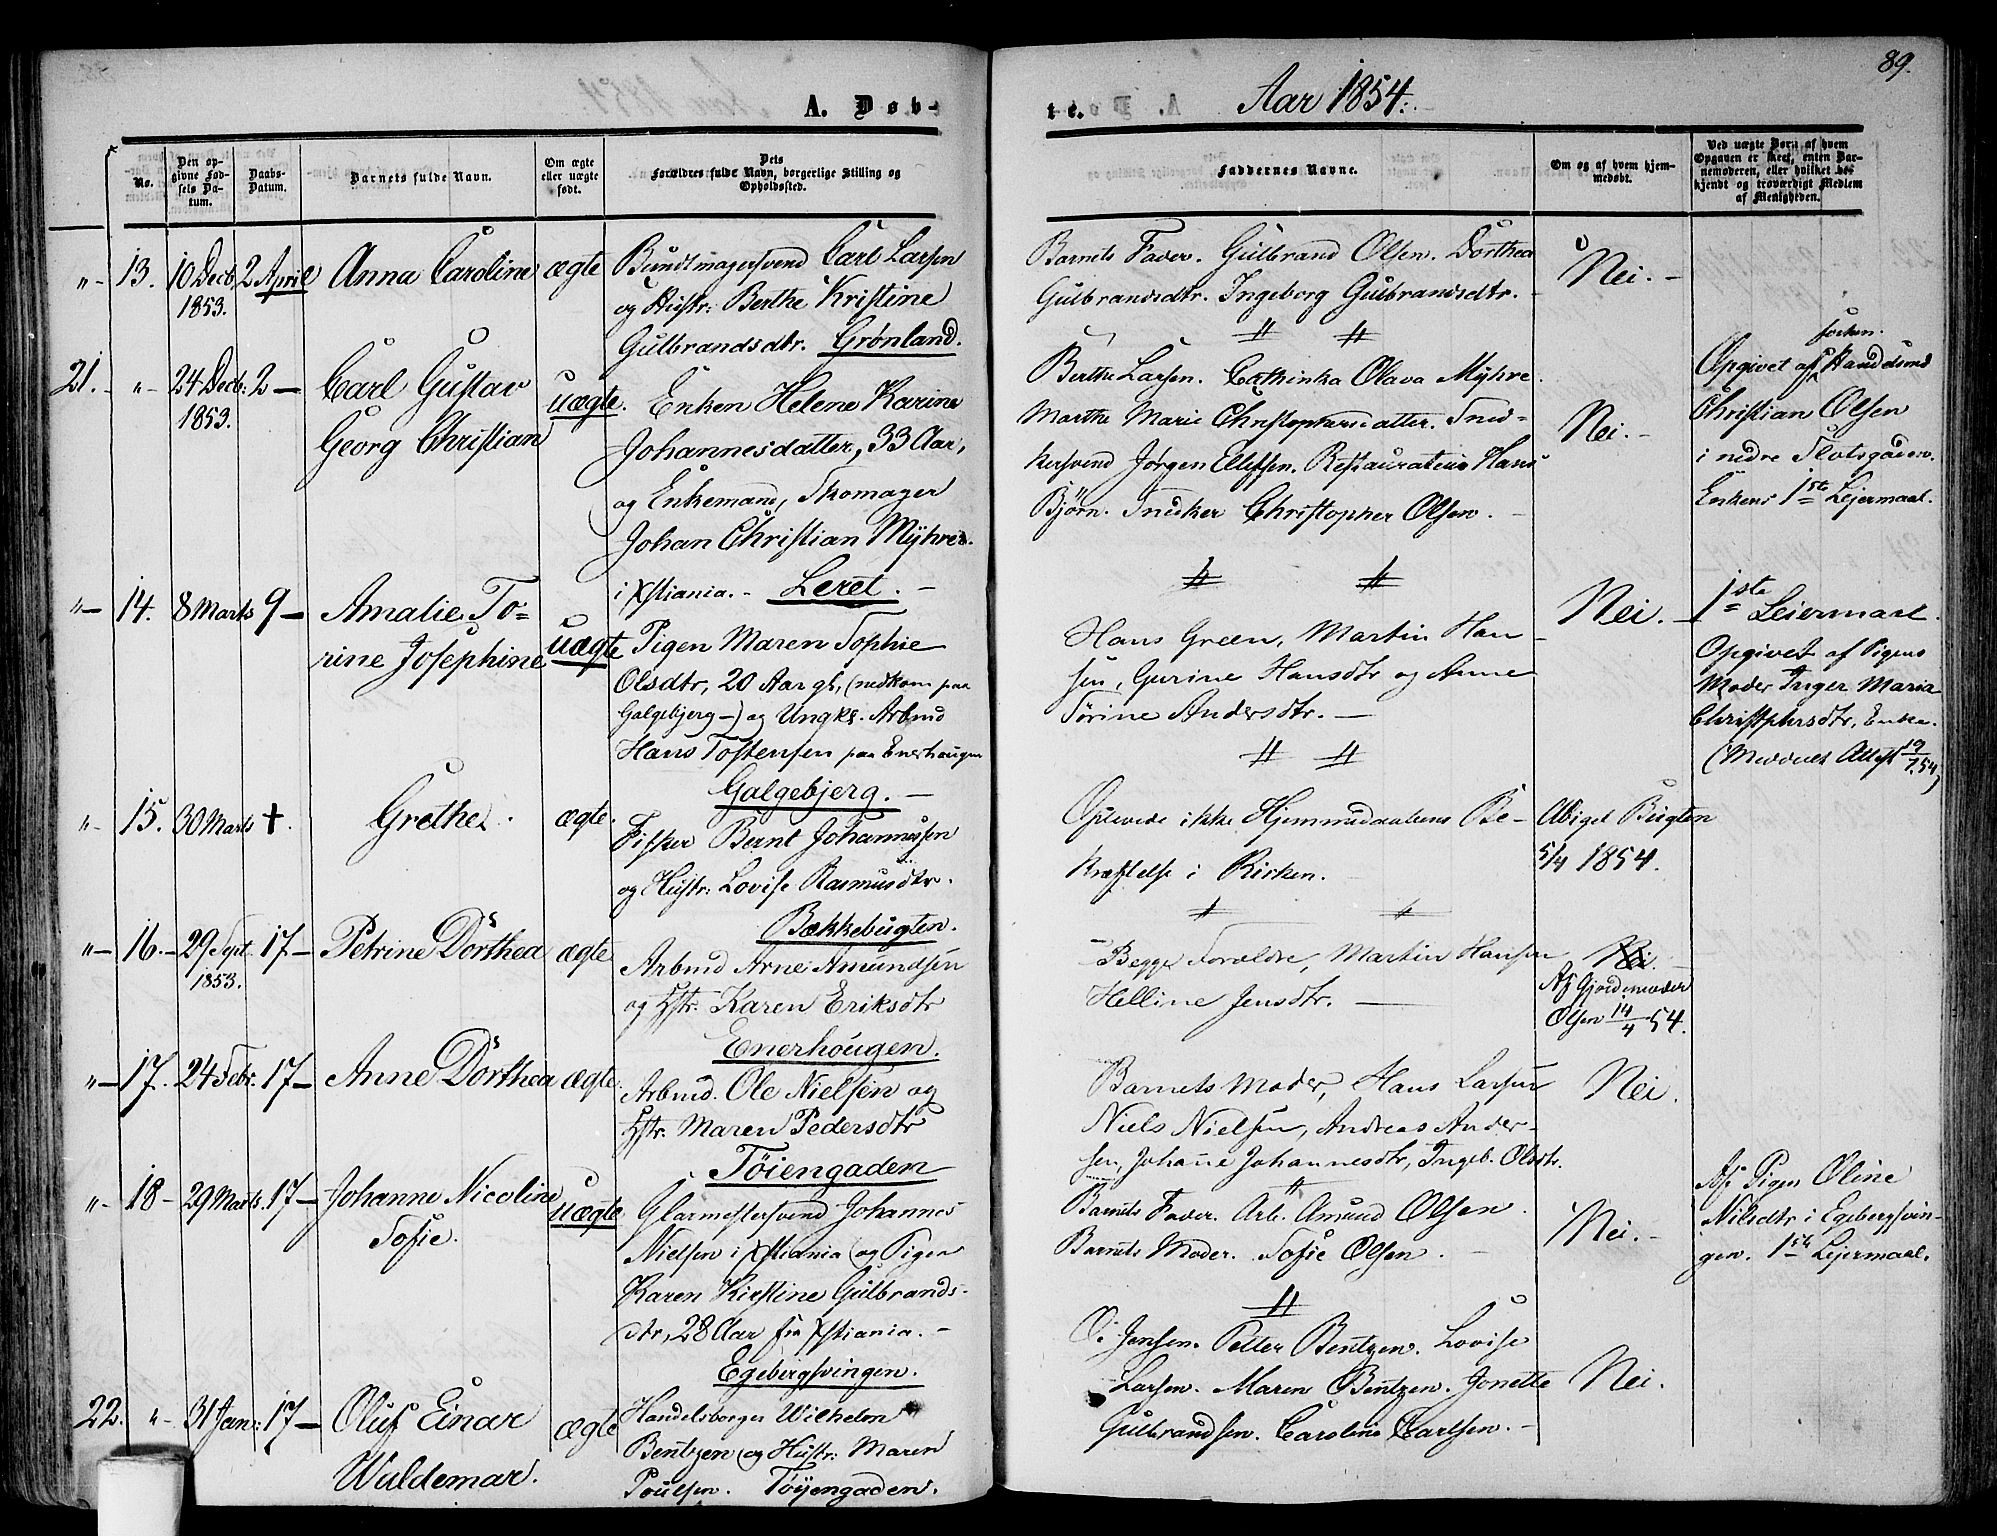 89.
A. Døb-
te.
Aar 1854.
No.
Den op-
givne Fød-
sels Da-
tum.
Daabs-
Datum.
Barnets fulde Navn.
Om ægte
eller uægte
født.
Dets
Forældres fulde Navn, borgerlige Stilling og
Opholdssted.
Faddernes Navne.
Om og af hvem hjem-
medøbt.
Ved uægte Børn af hvem
Opgaven er skeet, enten Bar-
nemoderen, eller hvilket be-
kjendt og troværdigt Medlem
af Menigheden.
"- 13. 10 Decb. 2 April Anna Caroline ægte
1853.
Buntmagersvend Carl Larsen
og Hustr: Berthe Kristine
Gulbrandsdtr. Grønland.
Barnets Fader. Gulbrand Olsen. Dorthea
Gulbrandsdtr. Ingeborg Gulbrandsdtr. -
Nei. -
21. "- 24 Decb. 2 - Carl Gustav uægte.
1853. Georg Christian
Enken Helene Karine
Johannesdatter, 33 Aar,
og Enkemand, Skomager
Johan Christian Myhre
i Xstiania. - Leret. -
Berthe Larsen. Cathinka Olava Myhre.
Marthe Marie Christophersdatter. Sned-
kersvend Jørgen Ellefsen. Restaurateur Hans
Bjørn. Snedker Christopher Olsen. -
Nei. -
Opgivet af Handelsmd
Christian Olsen
i nedre Slotsgaden.
Enkens 1ste Lejermaal.
"- 14. 8 Marts 9 - Amalie To-
rine Josephine uægte
Pigen Maren Sophie
Olsdtr, 20 Aar gl, (nedkom paa
Galgebjerg -) og Ungk. Arbmd
Hans Tostensen paa Enerhaugen
Galgebjerg. -
Hans Green, Martin Han-
sen, Gurine Hansdtr og Anne
Torine Andersdtr. -
Nei. -
1ste Leiermaal.
Opgivet af Pigens
Moder Inger Maria
Christophersdtr, Enke.
"- 15. 30 Marts +. Grethe. ægte.
Fisker Bernt Johannessen
og Hustr: Lovise Rasmusdtr.
Bækkebugten.
Opleve ikke Hjemmedaabens Be-
kræftelse i Kirken. -
Abigel Bugten
5/4 1854.
"- 16. - 29 Sept. 17 - Petrine Dorthea ægte
1853.
Arbmd Arne Amundsen
og Hstr: Karen Eriksdtr
Enerhougen.
Begge Forældre, Martin Hansen
Helline Jensdtr. -
Nei.
Af Gjordemoder
Olsen 14/4 54.
"- 17. 24 Febr. 17 - Anne Dorthea ægte.
Arbmd. Ole Nielsen og
Hstr: Maren Pedersdtr
Tøiengaden
Barnets Moder, Hans Larsen
Niels Nielsen, Andreas Ander-
sen, Johanne Johannesdtr, Ingeb. Olsdtr.
Nei.
"- 18 - 29 Marts. 17 - Johanne Nicoline uægte
Sofie.
Glarmestersvend Johannes
Nielsen i Xstiania (og Pigen
Karen Kirstine Gulbrands-
dtr, 28 Aar fra Xstiania. -
Egebergsvingen.
Barnets Fader. Arb. Amund Olsen.
Barnets Moder. Sofie Olsen. -
Nei. -
Af Pigen Oline
Nilsdtr i Egebergsvin-
gen. 1ste Lejermaal.
22. "- 31 Jan: 17 - Oluf Einar ægte
Waldemar.
Handelsborger Wilhelm
Bentzen og Hustr: Maren
Poulsen. Tøyengaden.
O. Jensen. Petter Bentzen. Lovise
Larsen. Maren Bentzen. Jonette
Gulbrandsen. Caroline Carlsen. -
Nei.